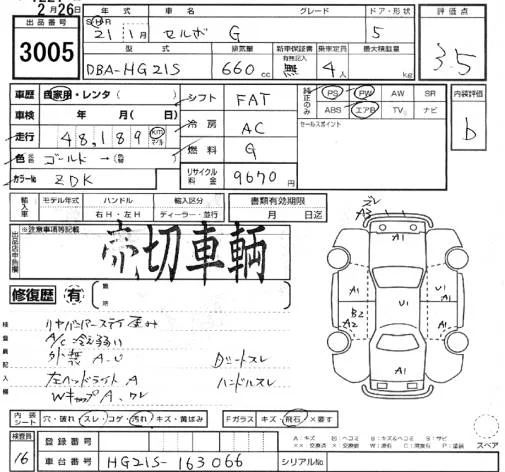 2月26日
出品番号 3005
年式 車名 グレード ドア・形状 評価点
SH 21年 1月 セルボ G 5 3.5
型式 排気量 新車保証書 有無記入 乗車定員 最大積載量
DBA-HG21S 660cc 無 4人 kg
車歴 自家用・レンタ( )
シフト FAT
純正のみ PS PW AW SR
ABS エアB TV ナビ
内装評価 b
車検 年 月( 日)
冷房 AC
セールスポイント
走行 48,189 Km マイル
燃料 G
色 元色 ゴールド → 色替( )
リサイクル料金 9670円
カラーNo ZDK
輸入車 モデル年式 ハンドル 右H・左H 輸入区分 ディーラー・並行
書類有効期限 月 日迄
※注意事項等記載
売切車輌
修復歴 有 箇所
検査員記入欄
リヤバンパーステイ歪み
A/C冷え弱い
外装A.U
ダッシュスレ
左ヘッドライトA
ハンドルスレ
WキャップA.ワレ
ズレ
A3
A1
A1 U1 A1
B2
A2 U1 A1
A1
A1
内装シート 穴・破れ スレ・コゲ・汚れ キズ・黄ばみ
Fガラス キズ・飛石 ×要す
スペア
検査員 16
登録番号
車台番号 HG21S-163066
シリアルNo
A:キズ U:ヘコミ B:キズ&ヘコミ S:サビ
××:交換済 ×:交換 W:波 C:腐食 P:塗装